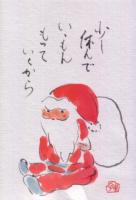 少し
休んで
いいもん
もって
いくから